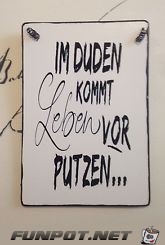 IM DUDEN
KOMMT
Leben VOR
PUTZEN...
FUNPOT.NET